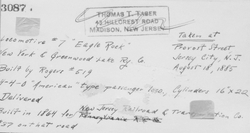 3087.
THOMAS T. TABER
43 HILLCREST ROAD
MADISON, NEW JERSEY
Locomotive #7 "Eagle Rock"
New York & Greenwood Lake Ry. Co.
Built by Rogers # 519
4-4-0 "American" type passenger loco, Cylinders 16 x 22
Delivered
New Jersey Railroad & Transportation Co.
Built in 1864 for Pennsylvania
57 on that road
Taken at
Provost Street
Jersey City, N.J.
August 18, 1885